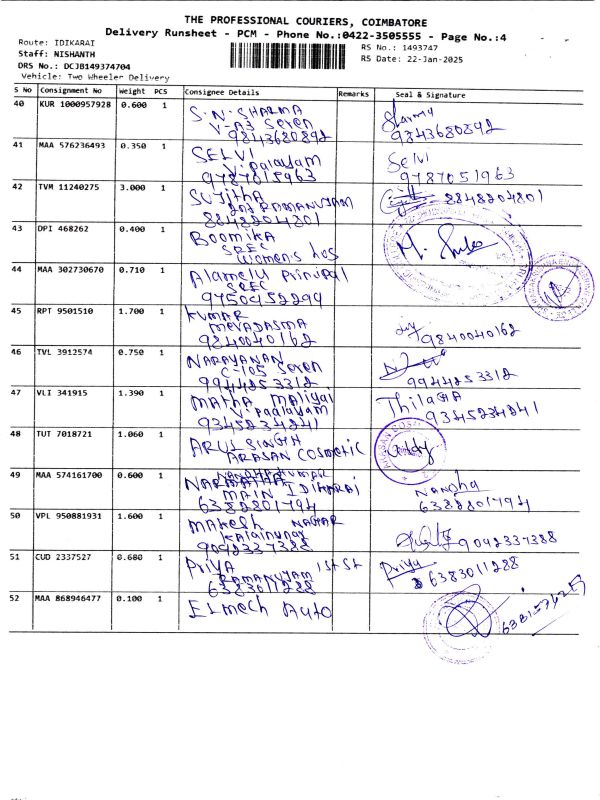 THE PROFESSIONAL COURIERS, COIMBATORE
Delivery Runsheet - PCM - Phone No.:0422-3505555 - Page No.:4
Route: IDIKARAI
RS No.: 1493747
Staff: NISHANTH
RS Date: 22-Jan-2025
DRS No.: DCJB149374704
Vehicle: Two Wheeler Delivery
S No Consignment No Weight PCS Consignee Details Remarks Seal & Signature
40 KUR 1000957928 0.600 1 S.N. SHARMA Sharma
V-A3 Seven 9843680892
9843680892
41 MAA 576236493 0.350 1 SELVI Selvi
V.palayam 9787051963
42 TVM 11240275 3.000 1 Sujitha 8848204801
2nd RAMANUJAM
8848204801
43 DPI 468262 0.400 1 Boomika
SREC
Women's hos
44 MAA 302730670 0.710 1 Alamelu Principal
SREC
9750452294
45 RPT 9501510 1.700 1 KUMAR 9840040162
MEVADASMA
9840040162
46 TVL 3912574 0.750 1 NARAYANAN
C-105 Seven 9944253312
9944253312
47 VLI 341915 1.390 1 MATHA Maligai Thilaga
V.palayam 9345234241
9345234241
48 TUT 7018721 1.060 1 ARUL SINGH
ARASAN COSMETIC
49 MAA 574161700 0.600 1 Nandha
MAIN IDIKARAI 6382801794
6382801794
50 VPL 950881931 1.600 1 Makesh NAGAR
9042337388 9042337388
51 CUD 2337527 0.680 1 Priya 1st St Priya
RAMANUJAM 6383011288
6383011288
52 MAA 868946477 0.100 1 Elmech Auto